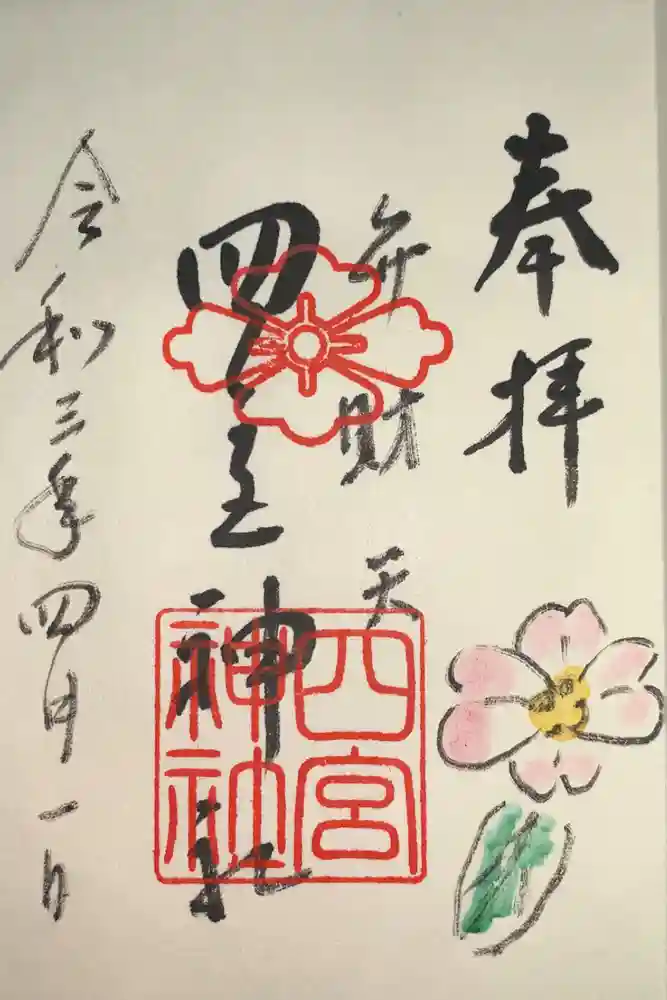 奉拝
弁財天
四宮神社
四宮
神社
令和三年四月一日